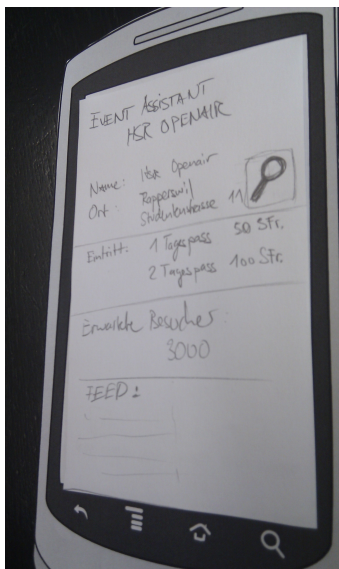 EVENT ASSISTANT
HSR OPENAIR
Name: Hsr Openair
Ort: Rapperswil
Studentenstrasse 11
Eintritt: 1 Tagespass 50 SFr.
2 Tagespass 100 SFr.
Erwartete Besucher:
3000
FEED: